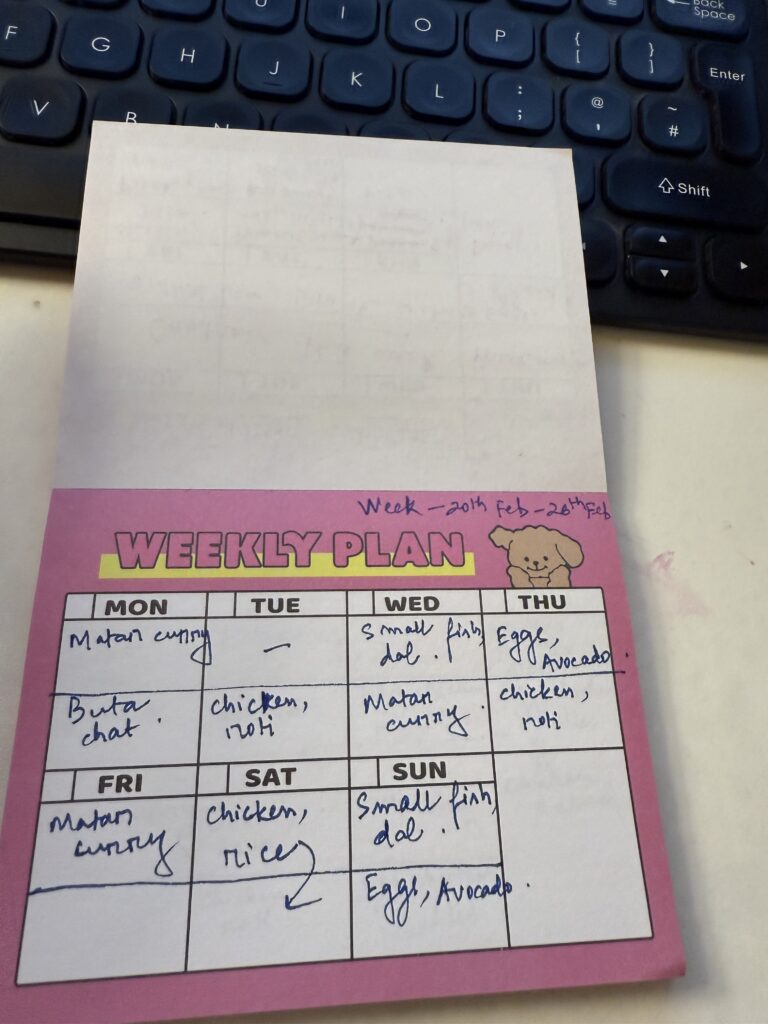 U I O P { [ } ] Back Space
F G H J K L : ; @ ' ~ # Enter
V B N Shift
Week - 20th Feb - 26th Feb
WEEKLY PLAN
MON TUE WED THU
Matan curry — Small fish, dal. Eggs, Avocado.
Buta chat. chicken, roti Matan curry. chicken, roti
FRI SAT SUN
Matan curry chicken, rice Small fish, dal.
Eggs, Avocado.